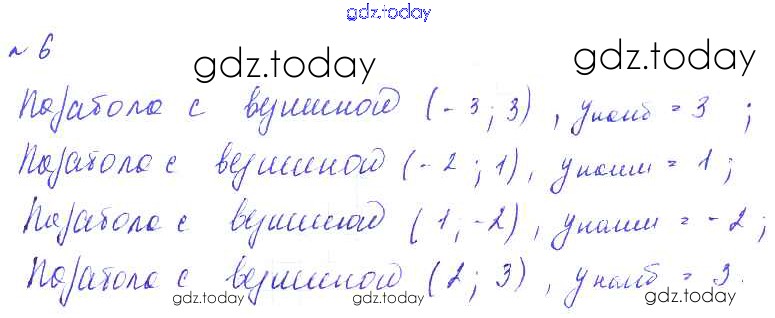 gdz.today
№ 6
gdz.today gdz.today
Парабола с вершиной (-3; 3), yнаиб = 3;
Парабола с вершиной (-2; 1), yнаим = 1;
Парабола с вершиной (1; -2), yнаим = -2;
Парабола с вершиной (2; 3), yнаиб = 3.
gdz.today gdz.today gdz.today